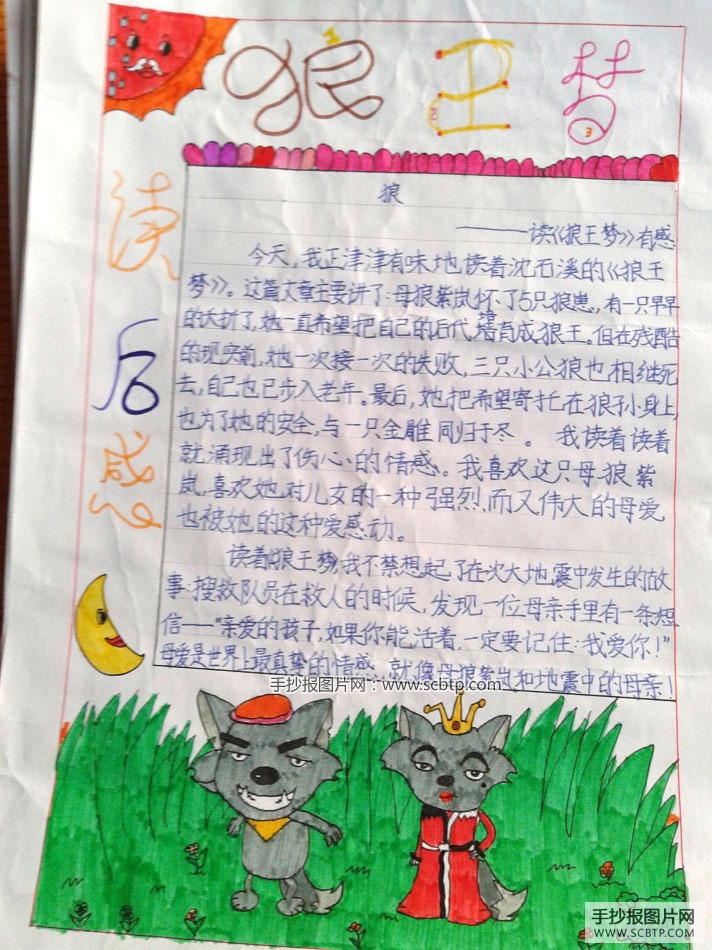 狼王梦
1
2
3
读后感
狼
———读《狼王梦》有感
今天，我正津津有味地读着沈石溪的《狼王
梦》。这篇文章主要讲了：母狼紫岚怀了5只狼崽，有一只早早
的夭折了，她一直希望把自己的后代培育成狼王。但在残酷
的现实前，她一次接一次的失败，三只小公狼也相继死
去，自己也已步入老年。最后，她把希望寄托在狼孙身上，
也为了她的安全，与一只金雕同归于尽。我读着读着
就涌现出了伤心的情感。我喜欢这只母狼紫
岚，喜欢她对儿女的一种强烈，而又伟大的母爱
也被她的这种爱感动。
读着《狼王梦》，我不禁想起了在次大地震中发生的故
事：搜救队员在救人的时候，发现一位母亲手里有一条短
信——“亲爱的孩子，如果你能活着，一定要记住：我爱你！”
母爱是世界上最真挚的情感，就像母狼紫岚和地震中的母亲！
手抄报图片网：www.scbtp.com
手抄报图片网
WWW.SCBTP.COM